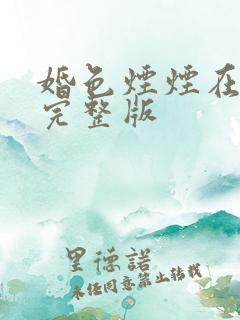 婚色煙煙在
完整版
里德諾
未经同意禁止转载